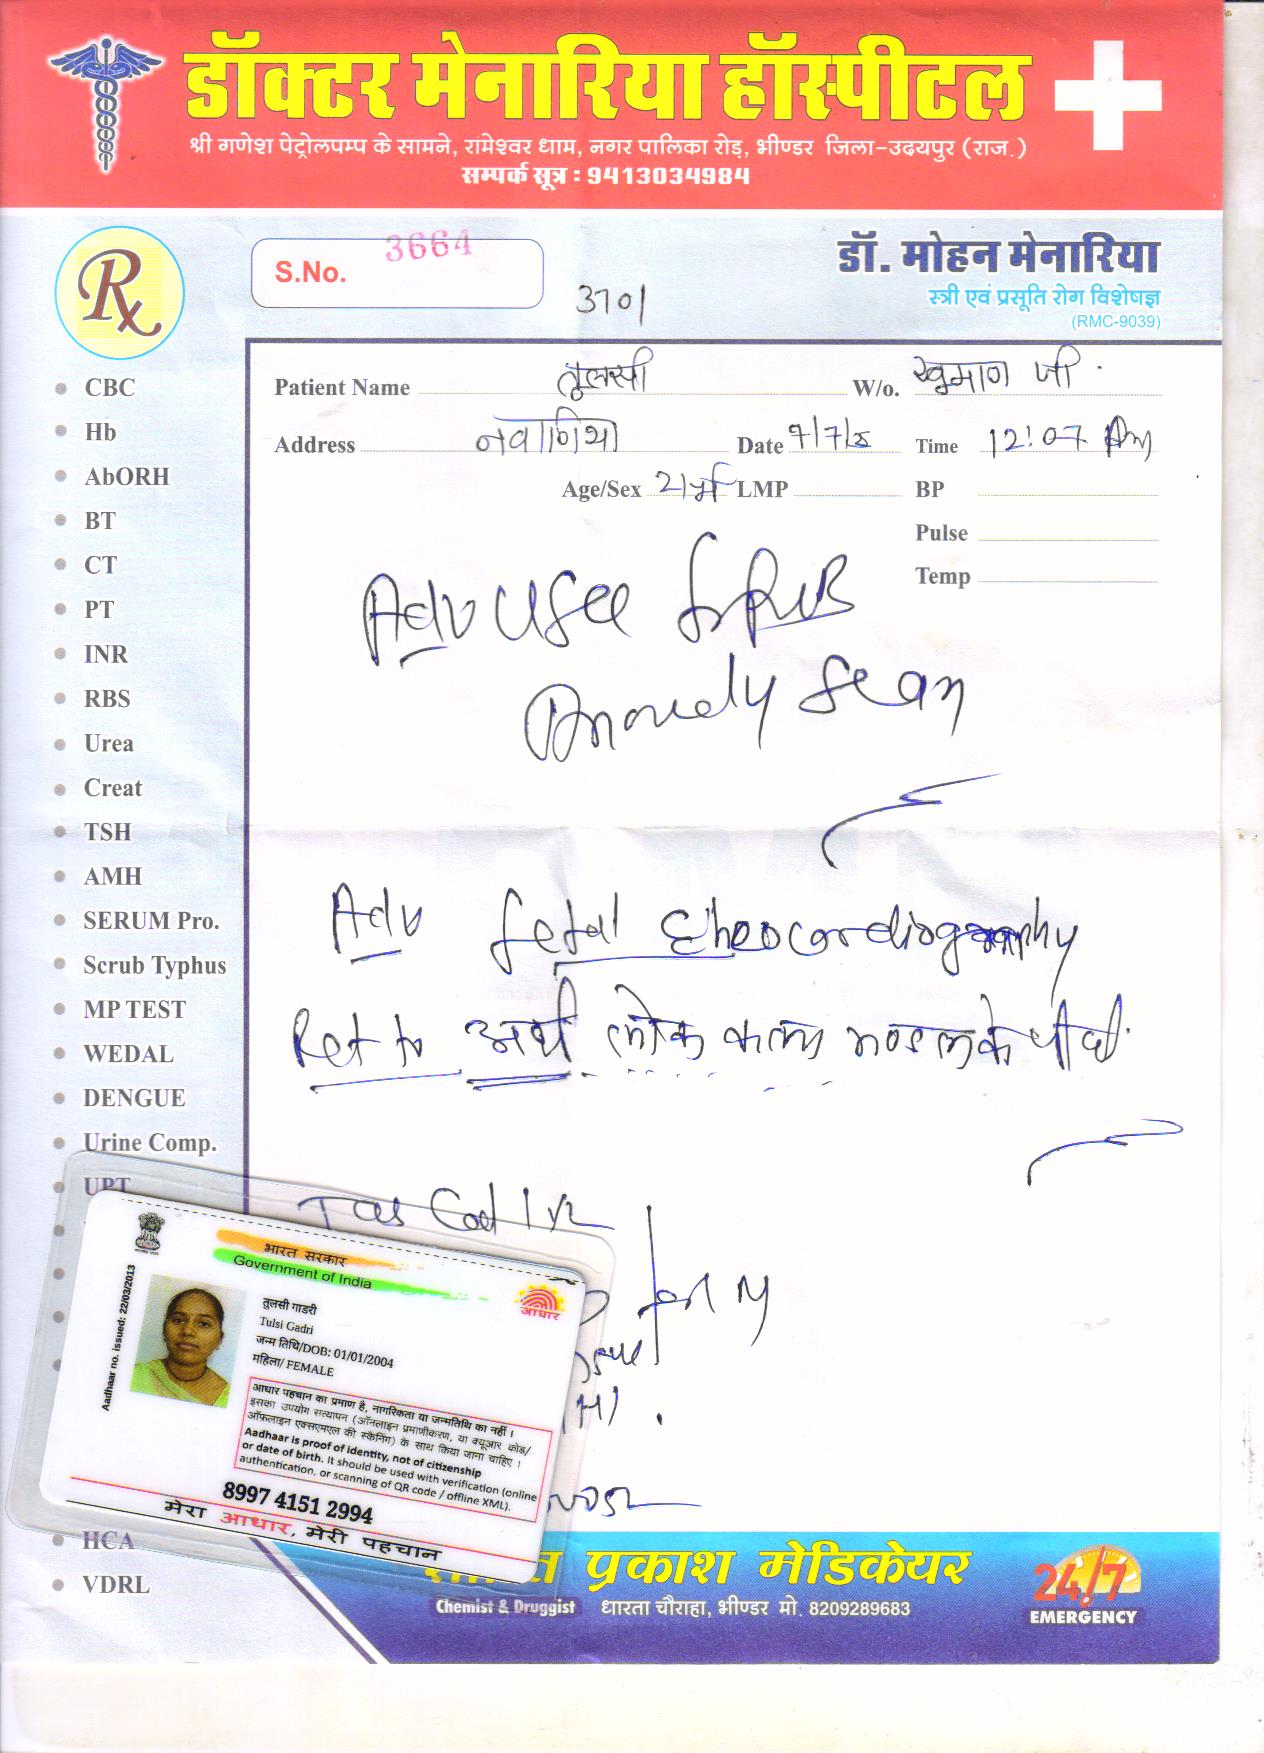 डॉक्टर मेनारिया हॉस्पीटल
श्री गणेश पेट्रोलपम्प के सामने, रामेश्वर धाम, नगर पालिका रोड़, भीण्डर जिला-उदयपुर (राज.)
सम्पर्क सूत्र : 9413034984
Rx
S.No. 3664
3701
डॉ. मोहन मेनारिया
स्त्री एवं प्रसूति रोग विशेषज्ञ
(RMC-9039)
Patient Name तुलसी W/o. खुमाण जी
Address नवाणिया Date 7/7/25 Time 12:07 PM
Age/Sex 21 LMP BP
Pulse
Temp
CBC
Hb
AbORH
BT
CT
PT
INR
RBS
Urea
Creat
TSH
AMH
SERUM Pro.
Scrub Typhus
MP TEST
WEDAL
DENGUE
Urine Comp.
UPT
HCA
VDRL
Adv USG for
Anomely Scan
Adv fetal Ehocardiography
Ref to अर्थ
भारत सरकार
Government of India
Aadhaar no. issued: 22/03/2013
तुलसी गाडरी
Tulsi Gadri
जन्म तिथि/DOB: 01/01/2004
महिला/ FEMALE
आधार पहचान का प्रमाण है, नागरिकता या जन्मतिथि का नहीं ।
इसका उपयोग सत्यापन (ऑनलाइन प्रमाणीकरण, या क्यूआर कोड/
ऑफ़लाइन एक्सएमएल की स्कैनिंग) के साथ किया जाना चाहिए ।
Aadhaar is proof of identity, not of citizenship
or date of birth. It should be used with verification (online
authentication, or scanning of QR code / offline XML).
8997 4151 2994
मेरा आधार, मेरी पहचान
आधार
प्रकाश मेडिकेयर
Chemist & Druggist धारता चौराहा, भीण्डर मो. 8209289683
24/7
EMERGENCY